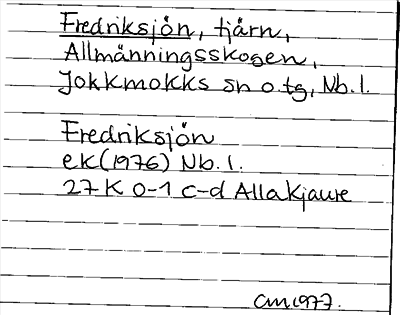 Fredriksjön, tjärn,
Allmänningsskogen,
Jokkmokks sn o. tg, Nb. l.
Fredriksjön
ek (1976) Nb. l.
27 K 0-1 c-d Allakjaure
CM 1977.